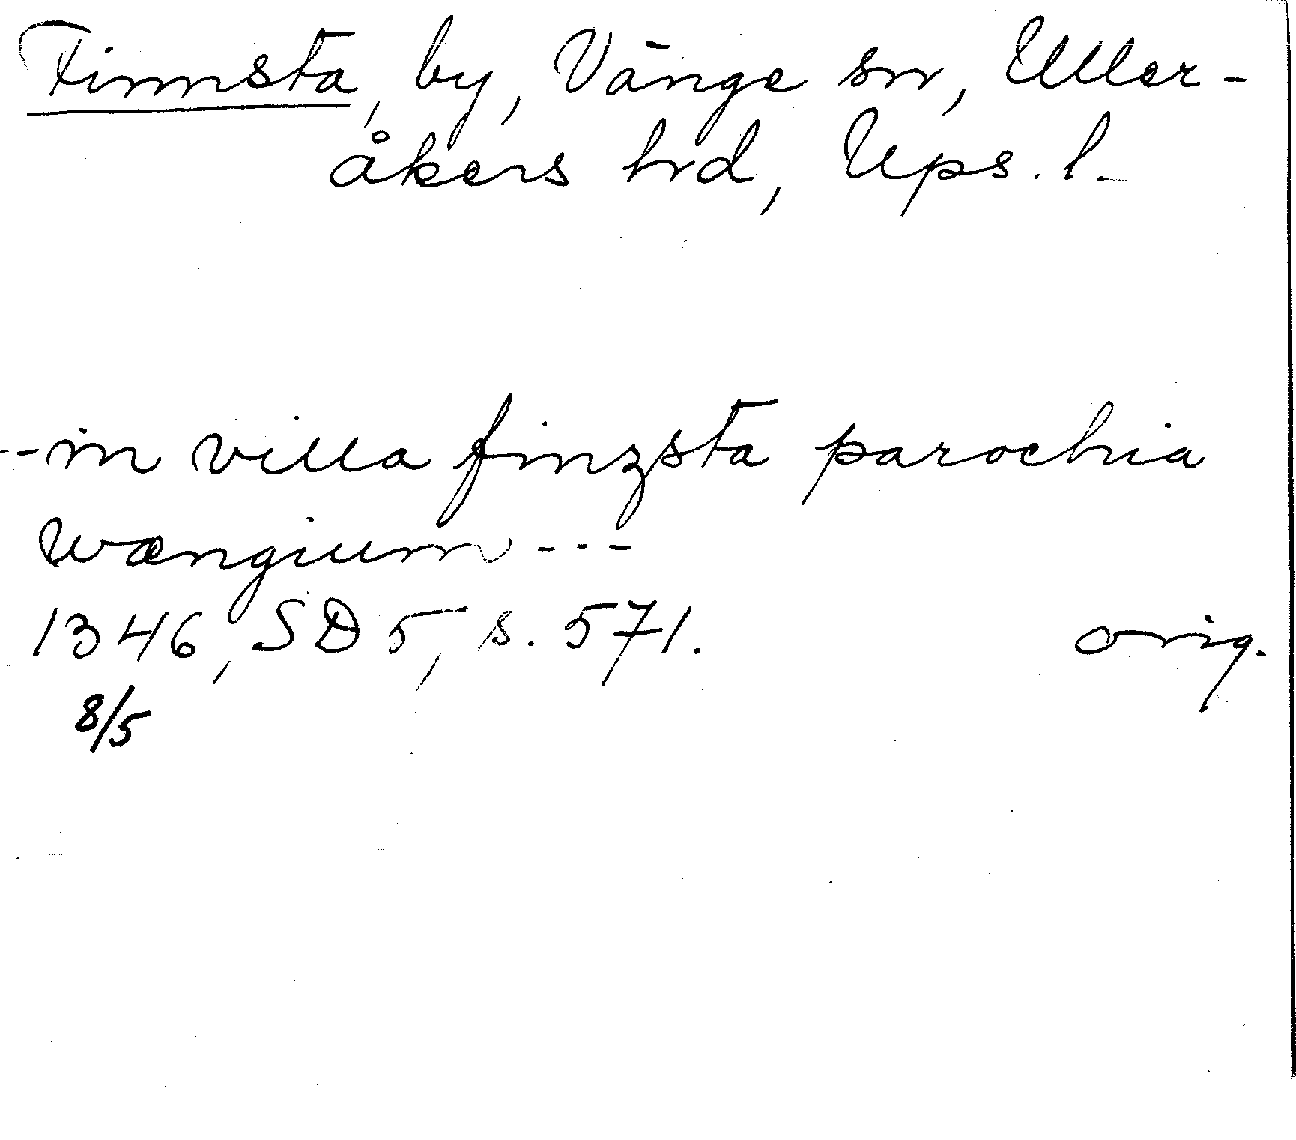 Finnsta, by, Vänge sn, Uller-
åkers hrd, Ups. l.
--in villa finzsta parochia
wængium ---
1346, SD 5, s. 571. orig.
8/5